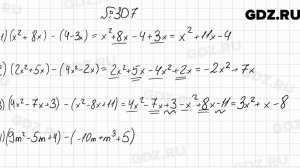 GDZ.RU
№307
1) (x² + 8x) - (4-3x) = x² + 8x - 4 + 3x = x² + 11x - 4
2) (2x² + 5x) - (4x² - 2x) = 2x² + 5x - 4x² + 2x = -2x² + 7x
3) (4x² - 7x + 3) - (x² - 8x + 11) = 4x² - 7x + 3 - x² + 8x - 11 = 3x² + x - 8
4) (9m² - 5m + 4) - (-10m + m³ + 5)
GDZ.RU